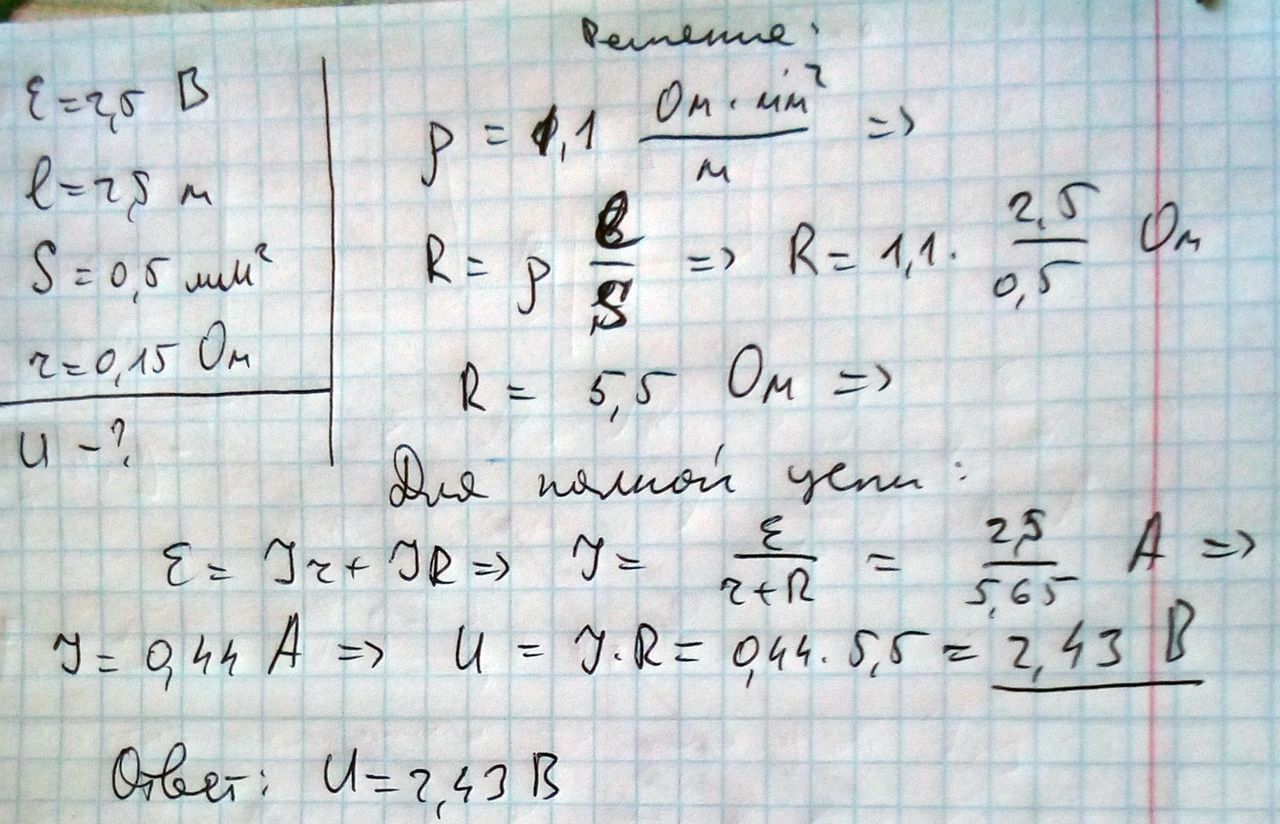 Решение:
ε = 2,5 В
l = 2,5 м
S = 0,5 мм²
r = 0,15 Ом
U - ?
ρ = 1,1 Ом · мм² / м =>
R = ρ l / S => R = 1,1 · 2,5 / 0,5 Ом
R = 5,5 Ом =>
Для полной цепи:
ε = Ir + IR => I = ε / r + R = 2,5 / 5,65 А =>
I = 0,44 А => U = I · R = 0,44 · 5,5 = 2,43 В
Ответ: U = 2,43 В